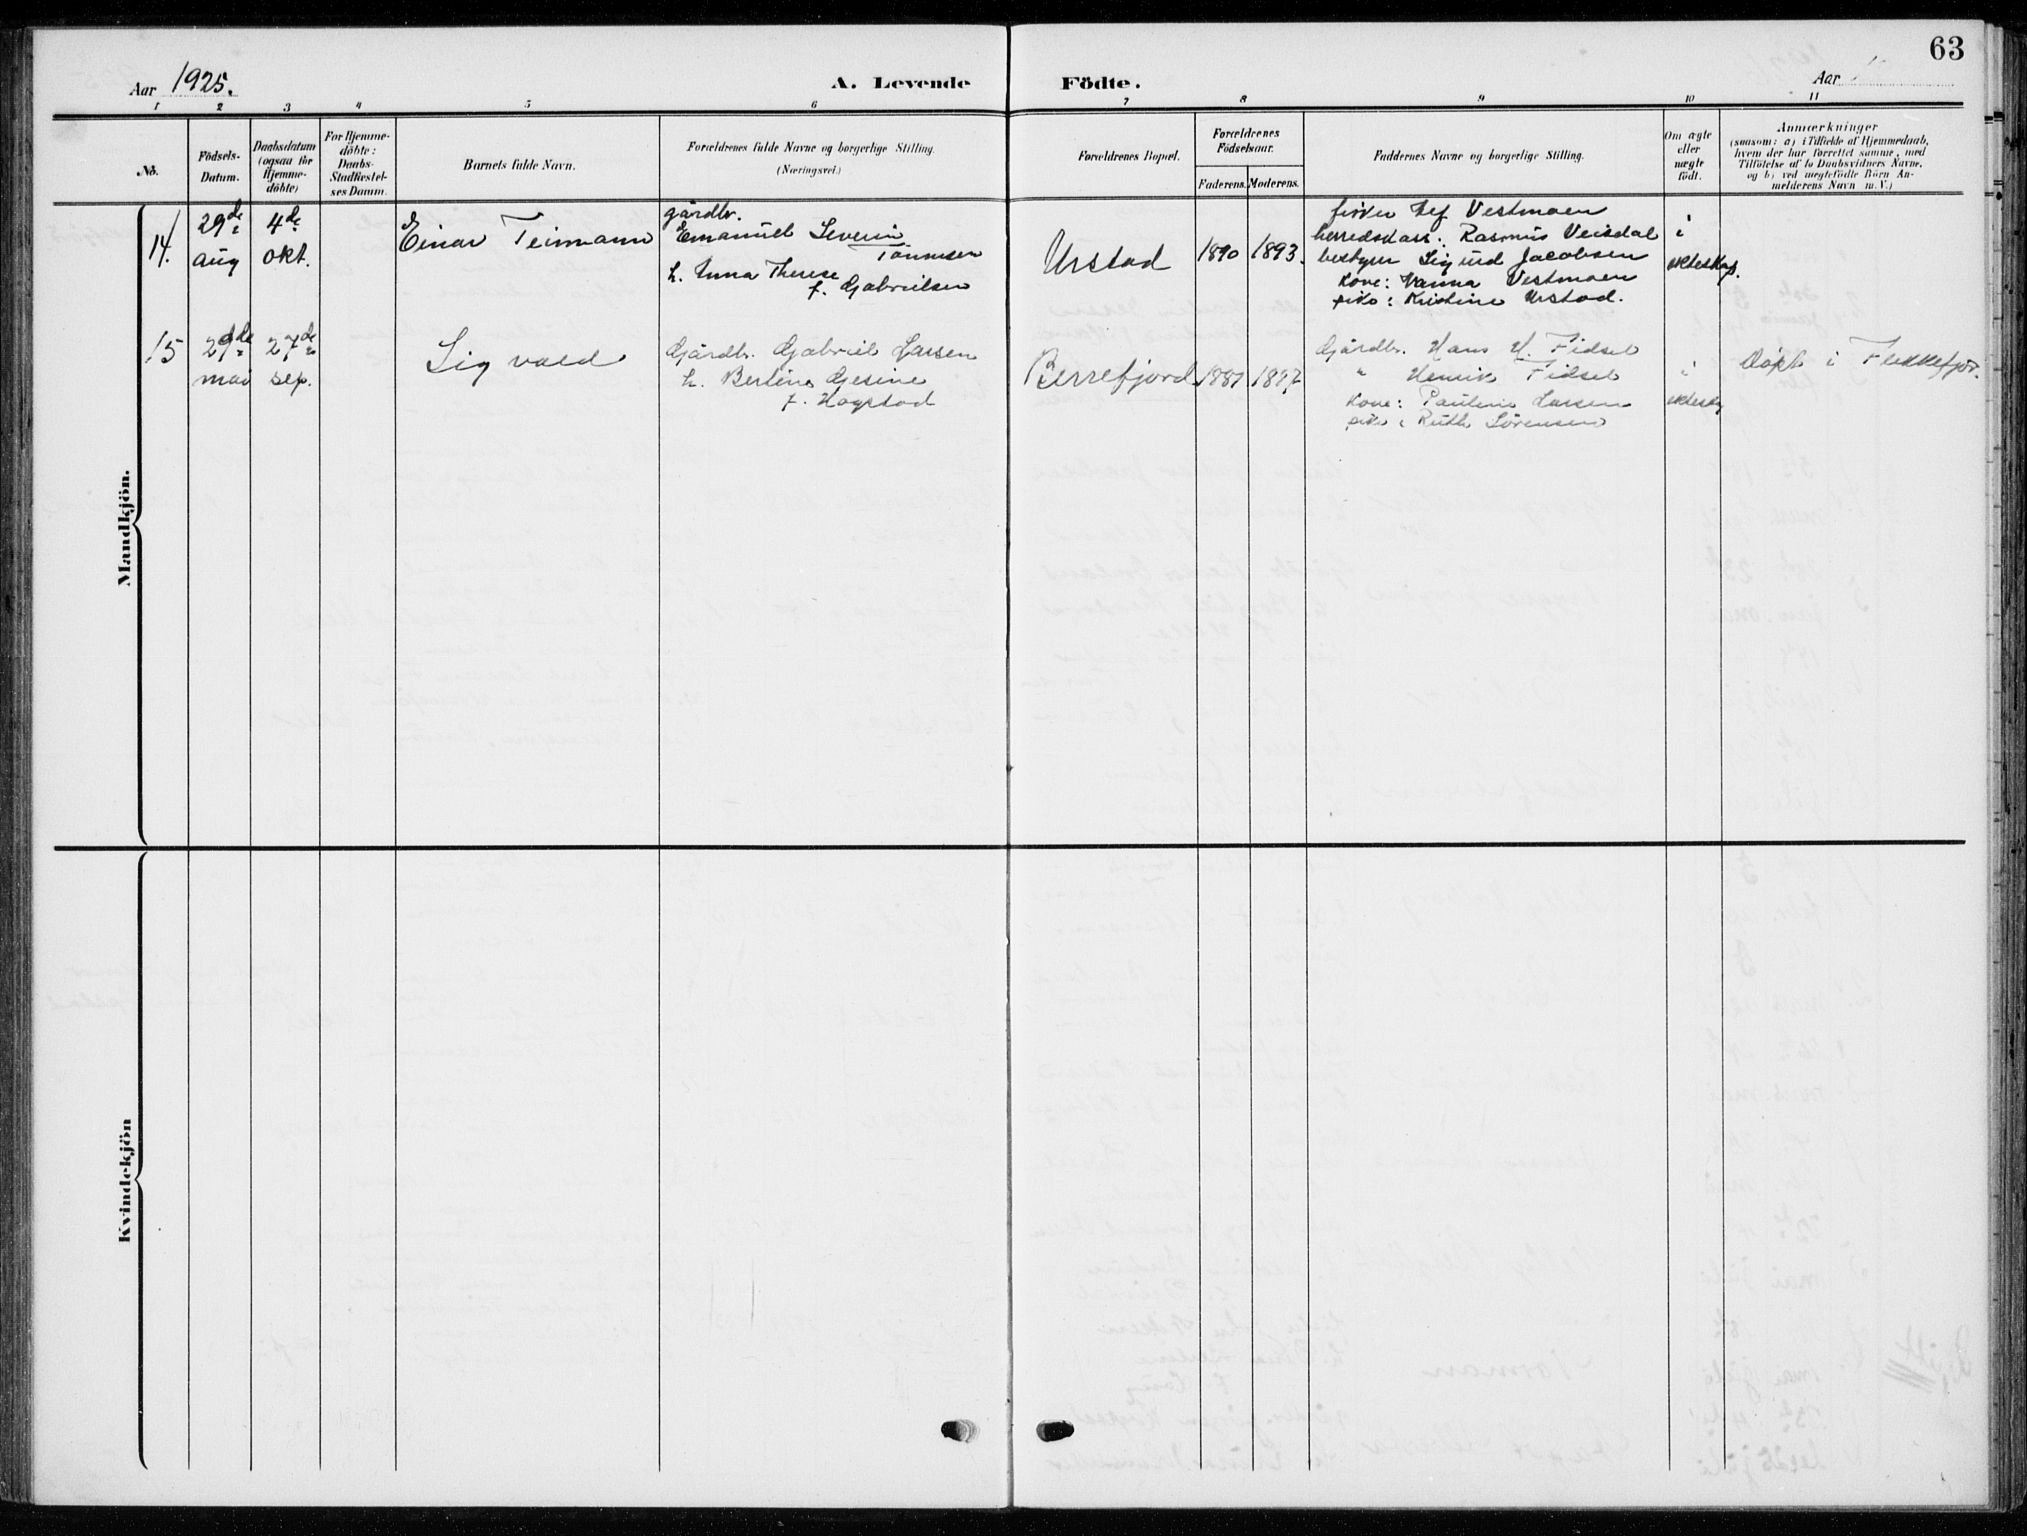 63
Aar 1925.
A. Levende Födte.
Aar
1 2 3 4 5 6 7 8 9 10 11
No.
Födsels-
Datum.
Daabsdatum
(ogsaa for
Hjemme-
döbte)
For Hjemme-
döbte:
Daabs-
Stadfæstel-
ses Datum.
Barnets fulde Navn.
Forældrenes fulde Navne og borgerlige Stilling.
(Næringsvei.)
Forældrenes Bopæl.
Forældrenes
Födselsaar.
Faderens. Moderens.
Faddernes Navne og borgerlige Stilling.
Om ægte
eller
uægte
födt.
Anmærkninger
(saasom: a) i Tilfælde af Hjemmedaab,
hvem der har forrettet samme, med
Tilföielse af to Daabsvidners Navne,
og b) ved uegtefödte Börn An-
melderens Navn m. V.)
Mandkjön.
14.
29de
aug
4de
okt.
Einar Teimann
gårdbr.
Emanuel Severin
Tønnesen
h. Anna Therese
f. Gabrielsen
Urstad
1890 1893.
fisker Vestmoen
herredskass. Rasmus Veisdal
bestyrer Sigurd Jacobsen
kone: Vestmoen
pike: Kristine Urstad.
i
ekteskap.
15
29de
mai
27de
sep.
Sigvald
Gårdbr. Gabriel Larsen
h. Bertine Gesine
f. Høgstad
Berrefjord
1887 1897
Gårdbr. Hans H. Fidsel
" Henrik Fidsel
kone: Pauline Larsen
pike: Ruth Sørensen
i
ektesk
Døpt i Flekkefjor.
Kvindekjön